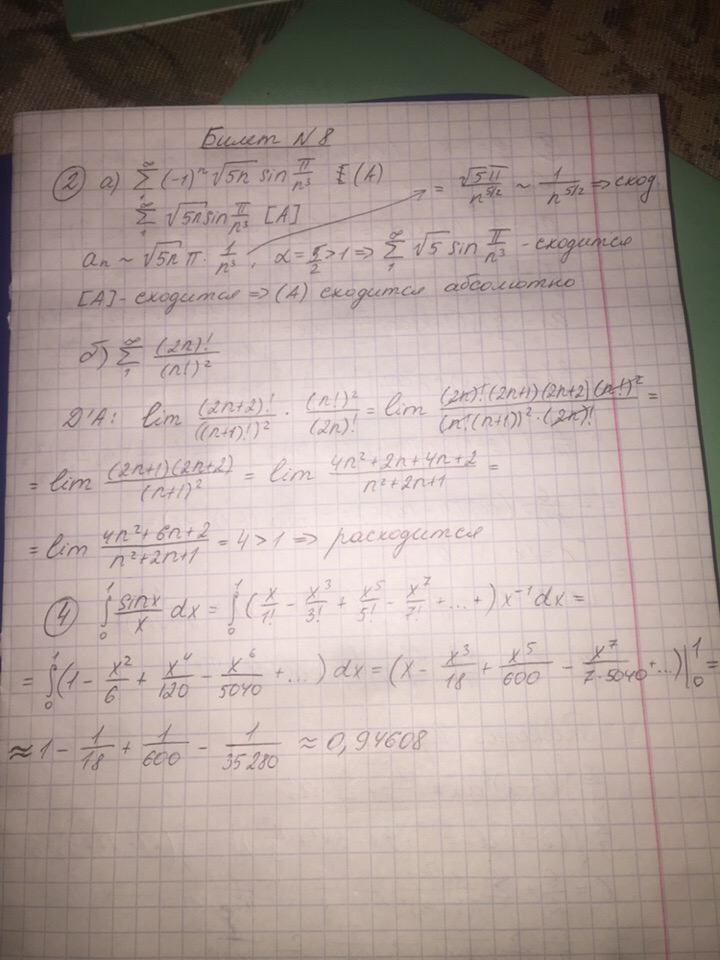 Билет N 8
② а) ∑₁^∞ (-1)ⁿ √5n sin π/n³ (A)
= √5π/n^5/2 ~ 1/n^5/2 => сход.
∑₁^∞ √5n sin π/n³ [A]
aₙ ~ √5n π · 1/n³, α = 5/2 > 1 => ∑₁^∞ √5 sin π/n³ - сходится
[A] - сходится => (A) сходится абсолютно
б) ∑₁^∞ (2n)!/(n!)²
D'A: lim (2n+2)!/((n+1)!)² · (n!)²/(2n)! = lim (2n)!(2n+1)(2n+2)(n!)²/(n!(n+1))²·(2n)! =
= lim (2n+1)(2n+2)/(n+1)² = lim 4n²+2n+4n+2/n²+2n+1 =
= lim 4n²+6n+2/n²+2n+1 = 4 > 1 => расходится
④ ∫₀¹ sinx/x dx = ∫₀¹ (x/1! - x³/3! + x⁵/5! - x⁷/7! + ... +) x⁻¹ dx =
= ∫₀¹ (1 - x²/6 + x⁴/120 - x⁶/5040 + ...) dx = (x - x³/18 + x⁵/600 - x⁷/7·5040 + ...)|₀¹ =
≈ 1 - 1/18 + 1/600 - 1/35280 ≈ 0,94608